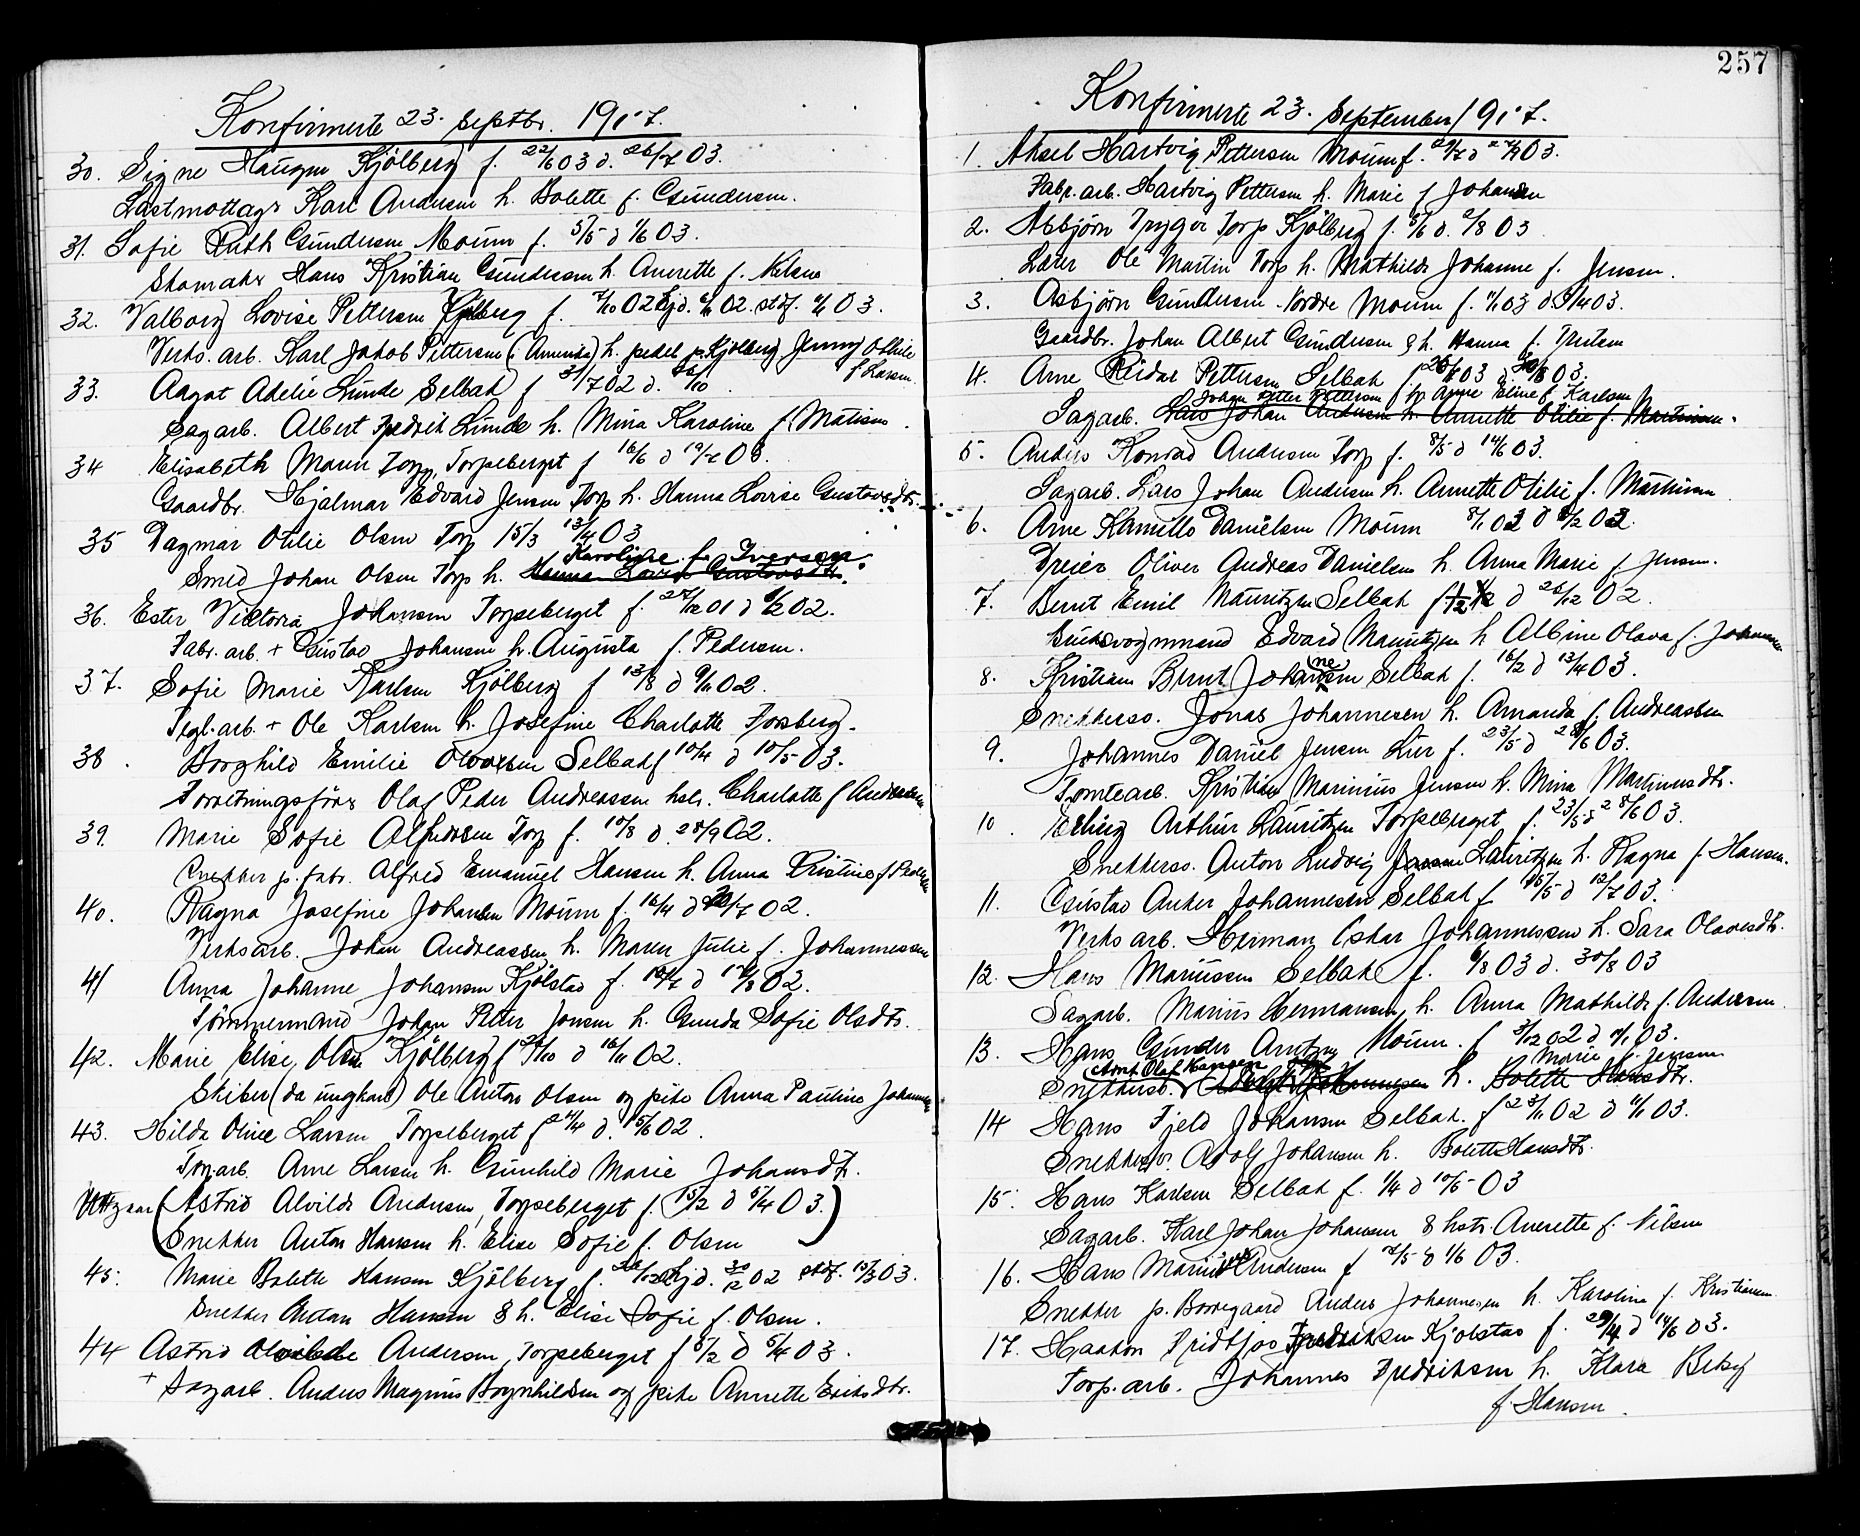 Konfirmerte 23. septbr. 1917.
30. Signe Haugen Kjölberg f. 22/6 03 d. 26/7 03.
Lastmottager Karl Andersen h. Bolette f. Gundersen.
31. Sofie Ruth Gundersen Moum f. 5/5 d 1/6 03.
Skomaker Hans Kristian Gundersen h. Anrette f. Nelsen
32. Valborg Lovise Pettersen Kjölberg f. 7/10 02 hjd. 02. stdf. 03.
Verks. arb. Karl Jakob Pettersen (i Amerika) h. p. Kjölberg Jenny Othilie
f Larsen.
33. Aagot Adelie Lunde Selbak f 31/7 02 d. 26/10
Sagarb. Albert Fredrik Lunde h. Mina Karoline f. Matisen.
34 Elisabeth Maren Torp, Torpeberget f 16/6 d 19/7 03.
Gaardbr. Hjalmar Edvard Jensen Torp h. Hanna Lovise Gustavsdtr.
35 Dagmar Otilie Olsen Torp 15/3 13/4 03
Karoline f. Iversen
Smed Johan Olsen Torp h. Hanna Lovise Gustavsdtr.
36. Ester Viktoria Johansen Torpeberget f. 27/12 01 d 9/2 02.
Fabr. arb. + Gustav Johansen h. Augusta f. Pedersen.
37. Sofie Marie Karlsen Kjölberg f 13/8 d 9/11 02.
Tegl. arb. + Ole Karlsen h. Josefine Charlotte Forsberg.
38. Borghild Emilie Olavesen Selbak f 10/4 d 10/5 03.
Forretningsförer Olaf Peder Andreassen hstr. Charlotte f Andreassen
39. Marie Sofie Alfredsen Torp f. 10/8 d. 28/9 02.
Snekker p. fabr. Alfred Emanuel Hansen h. Anna Kristine f. Pedersen
40. Ragna Josefine Johansen Moum f. 16/4 d 20/7 02.
Verksarb. Johan Andreassen h. Maren Julie f. Johannessen
41 Anna Johanne Johansen Kjölstad f. 10/7 d 17/8 02.
Tömmermand Johan Peter Jonsen h. Gunda Sofie Olsdtr.
42. Marie Elise Olsen Kjölberg f /10 d 16/11 02.
Skiber (da ungkarl) Ole Anton Olsen og pike Anna Pauline Johannesen
43. Hilda Oline Larsen Torpeberget f 21/4 d. 15/6 02.
Torp. arb. Arne Larsen h. Gunhild Marie Johansdtr.
Utgaar (Astrid Alvilde Andersen, Torpeberget f. 15/2 d 5/4 03.)
(Snekker Anton Hansen h. Elise Sofie f. Olsen
45. Marie Bolette Hansen Kjölberg f. 26/12 hjd. 30/12 02 stdf. 15/3 03.
Snekker Anton Hansen & h. Elise Sofie f. Olsen.
44 Astrid Alvilde Andersen, Torpeberget f 5/2 d 5/4 03.
+ Sagarb. Anders Magnus Bognhildsen og pike Annette Eriksdtr.
257
Konfirmerte 23. September 1917.
1. Aksel Hartvig Pettersen Moum f. 29/7 d 27/9 03.
Fabr. arb. Hartvig Pettersen h. Marie f Johansen
2. Asbjörn Trygve Torp Kjölberg f. 5/6 d. 2/8 03.
Lærer Ole Martin Torp h. Mathilde Johanne f. Jensen.
3. Asbjörn Gundersen Nordre Moum f. 03 d. 03.
Gaardbr. Johan Albert Gundersen & h. Hanna f.
4. Arne Reidar Pettersen Selbak f. 26/ 03 d 30/8 03.
Johan Petter Pettersen h. Anne Eline f. Karlsen
Sagarb. Lars Johan Andersen h. Annette Otilie f. Martinsen.
5. Anders Konrad Andersen Torp f. 8/5 d 14/6 03.
Sagarb. Lars Johan Andersen h. Annette Otilie f. Martinsen
6. Arne Kamillo Danielsen Moum 8/1 02 d 8/2 02.
Dreier Oliver Andreas Danielsen h. Anna Marie f Jensen.
7. Bernt Emil Mauritzen Selbak f d 26/12 02.
Edvard Mauritzen h Albine Olava f. Johansen
8. Kristian Bernt Johannesen Selbak f. 16/2 d 13/4 03.
Snekkersv. Jonas Johannesen h. Amanda f. Andreassen
9. Johannes Daniel Jensen Lier f. 23/5 d 28/6 03.
Tomtearb. Kristian Marinius Jensen h. Mina Martinusdtr.
10. Erling Arthur Lauritzen Torpeberget f. 23/5 d 28/6 03.
Snekkersv. Anton Ludvig Jansen Lauritzen h. Ragna f. Hansen.
11. Gustav Anker Johannesen Selbak f 15/5 d 12/7 03.
Verksarb. Herman Oskar Johannessen h. Sara Olavesdtr.
12. Hans Mariussen Selbak f. 6/8 03 d. 30/8 03
Sagarb. Marius Hermansen, h. Anna Mathilde f. Andersen.
13. Hans Gunder Arntzen Moum. f 3/12 02 d 03.
Arnt Olaf Hansen Marie f. Jensen
Snekkersv. Adolf Johannesen h. Bolette Hansdtr.
14 Hans Fjeld Johansen Selbak. f 23/11 02 d 03.
Snekkersv. Adolf Johansen h. Bolette Hansdtr.
15. Hans Karlsen Selbak f. 1/4 d 10/5 03
Sagarb. Karl Johan Johansen & hstr. Anrette f. Nilsen
16. Hans Marius Andersen f 7/5 d 1/6 03.
Snekker p. Borregaard Anders Johannesen h. Karoline f. Kristiansen
17. Haakon Fridtjov Fredriksen Kjölstad f. 29/4 d 14/6 03.
Torp. arb. Johannes Fredriksen h. Klara Betsy
f. Hansen.